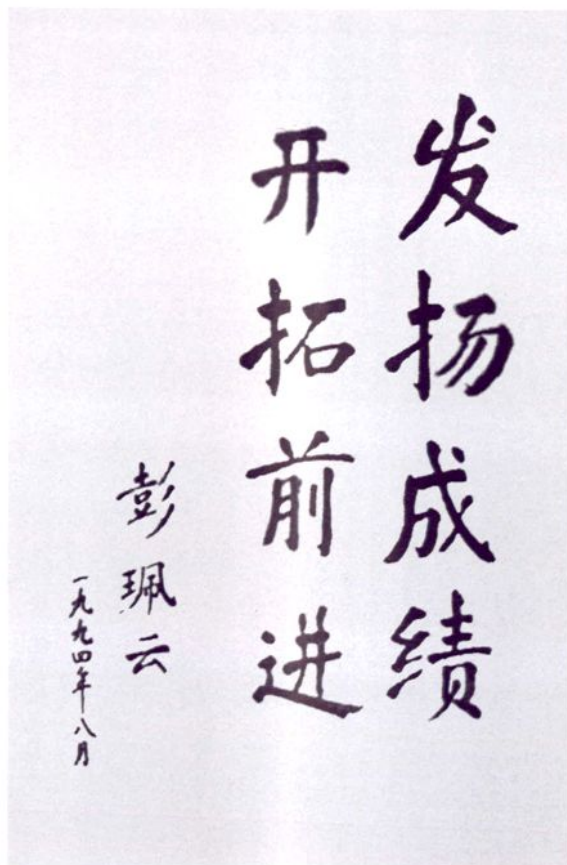 发扬成绩
开拓前进
彭珮云
一九九四年八月